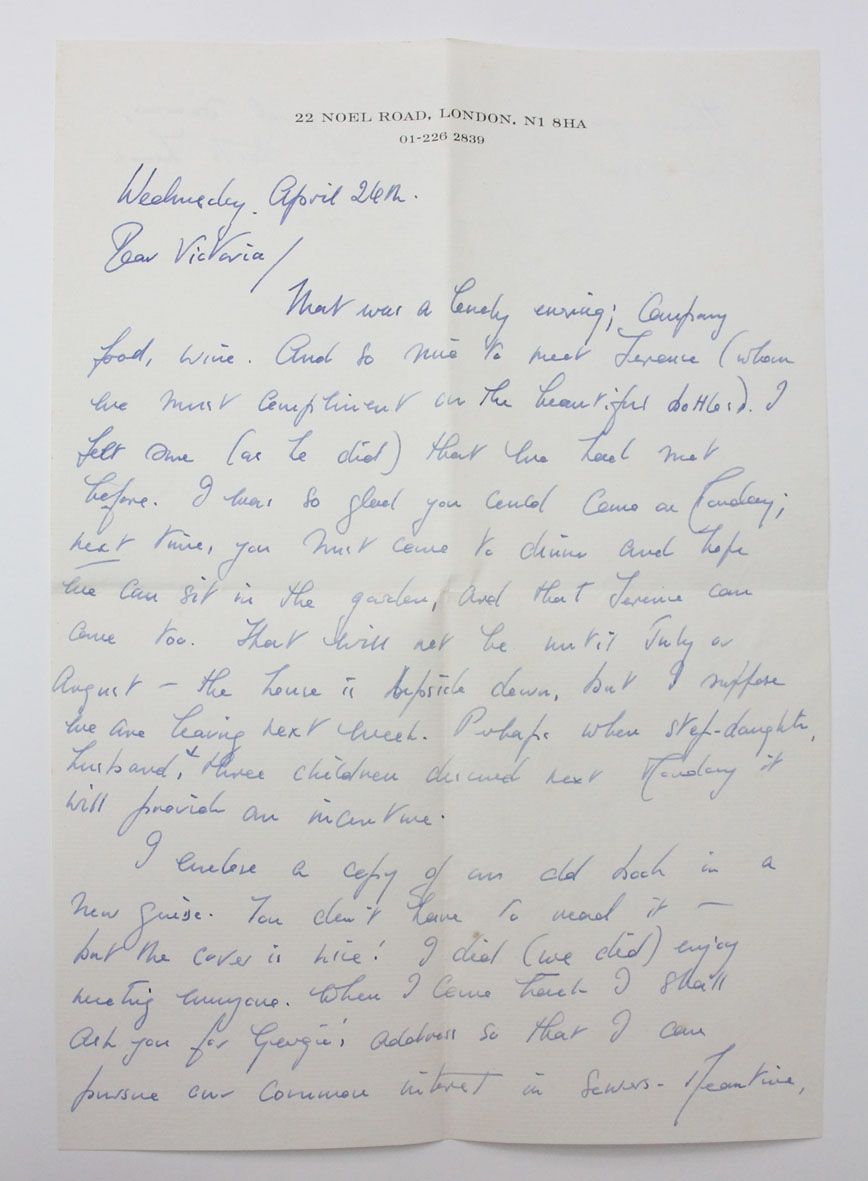 22 NOEL ROAD, LONDON, N1 8HA
01-226 2839
Wednesday. April 26th.
Dear Victoria/
That was a lovely evening; Company
food, wine. And so nice to meet Terence (whom
we must compliment on the beautiful bottles). I
felt sure (as he did) that we had met
before. I was so glad you could come on Monday;
next time, you must come to dinner and hope
we can sit in the garden, and that Terence can
come too. That will not be until July or
August – the house is upside down, but I suppose
we are leaving next week. Perhaps when step-daughter,
husband, & three children descend next Monday it
will provide an incentive.
I enclose a copy of an old book in a
new guise. You don't have to read it –
but the cover is nice! I did (we did) enjoy
meeting everyone. When I come back I shall
ask you for Georgie's address so that I can
pursue our common interest in sewers. Meantime,